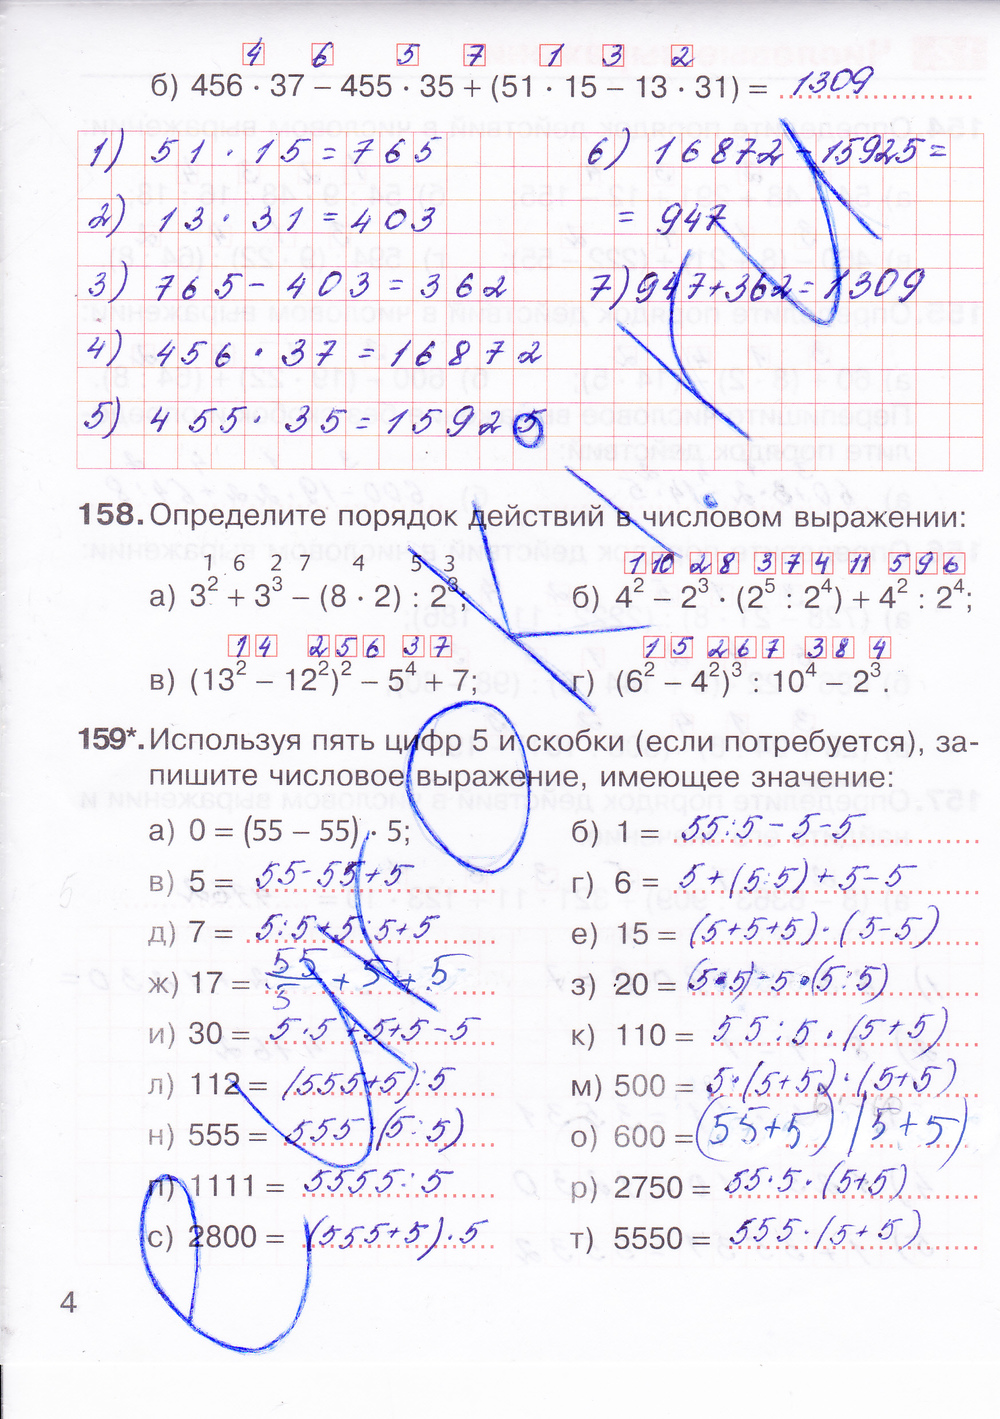 4 6 5 7 1 3 2
б) 456 · 37 – 455 · 35 + (51 · 15 – 13 · 31) = 1309
1) 51 · 15 = 765
6) 16872 – 15925 =
2) 13 · 31 = 403
= 947
3) 765 – 403 = 362
7) 947 + 362 = 1309
4) 456 · 37 = 16872
5) 455 · 35 = 15925
158. Определите порядок действий в числовом выражении:
1 6 2 7 4 5 3
а) 3² + 3³ – (8 · 2) : 2³;
1 10 2 8 3 7 4 11 5 9 6
б) 4² – 2³ · (2⁵ : 2⁴) + 4² : 2⁴;
1 4 2 5 6 3 7
в) (13² – 12²)² – 5⁴ + 7;
1 5 2 6 7 3 8 4
г) (6² – 4²)³ : 10⁴ – 2³.
159*. Используя пять цифр 5 и скобки (если потребуется), за-
пишите числовое выражение, имеющее значение:
а) 0 = (55 – 55) · 5;
б) 1 = 55:5 – 5 – 5
в) 5 = 55 – 55 + 5
г) 6 = 5 + (5:5) + 5 – 5
д) 7 = 5:5 + 5:5 + 5
е) 15 = (5+5+5) · (5–5)
ж) 17 = 55/5 + 5 + 5
з) 20 = (5·5) – 5 · (5:5)
и) 30 = 5·5 + 5 + 5 – 5
к) 110 = 55 : 5 · (5+5)
л) 112 = (555+5):5
м) 500 = 5·(5+5)·(5+5)
н) 555 = 555 (5:5)
о) 600 = (55+5) (5+5)
п) 1111 = 5555:5
р) 2750 = 55·5·(5+5)
с) 2800 = (555+5)·5
т) 5550 = 555·(5+5)
4